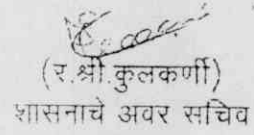 (र.श्री.कुलकर्णी)
शासनाचे अवर सचिव